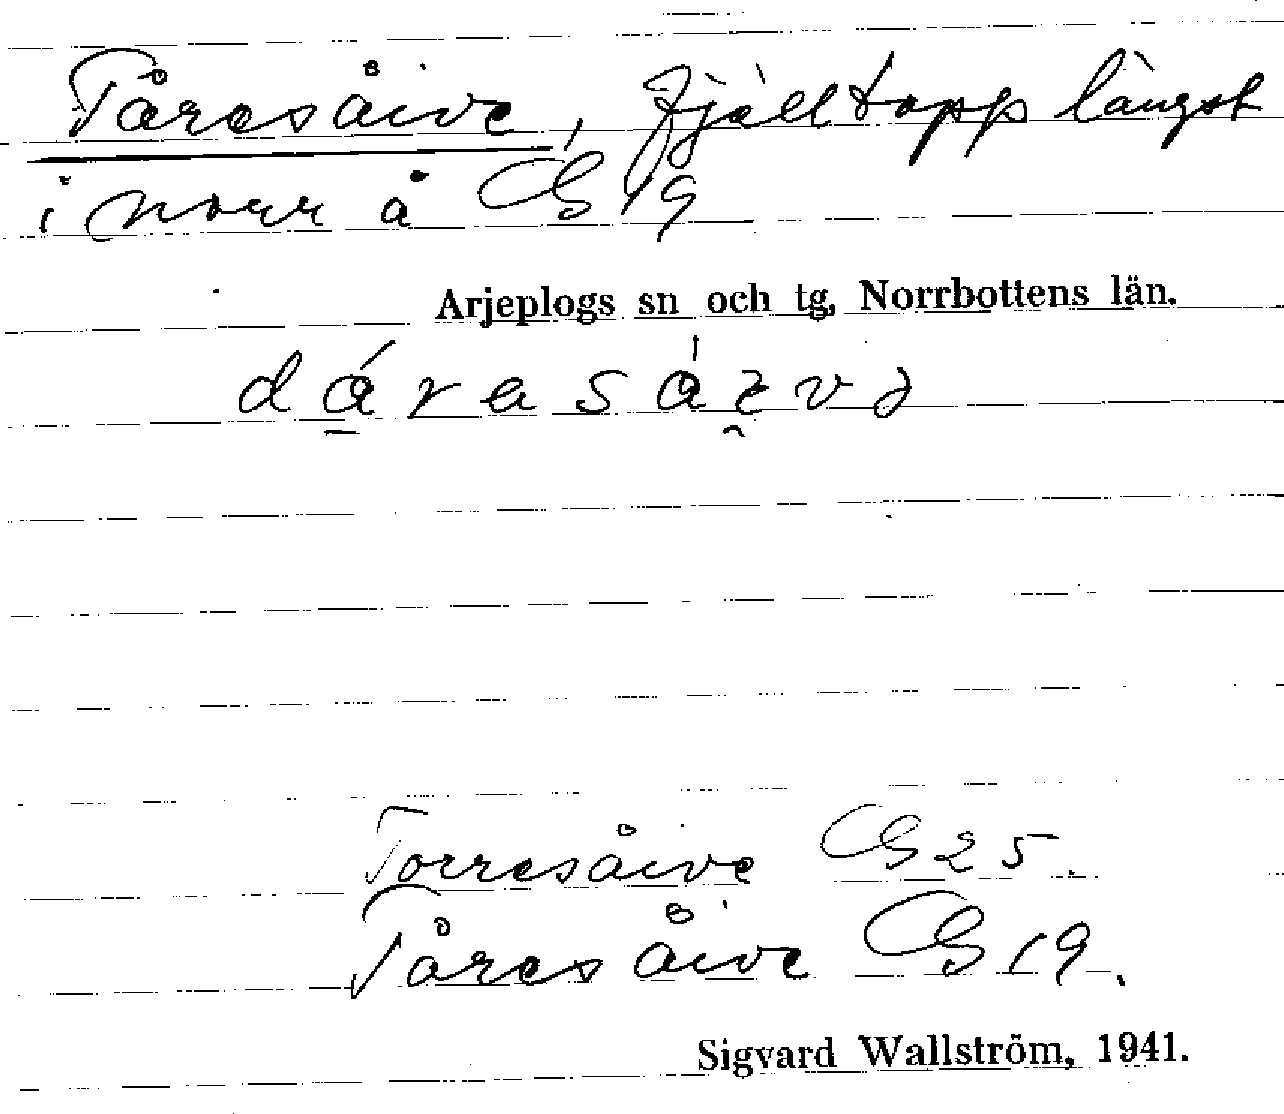 Tåresåive, fjälltopp längst
i norr å GS 19
Arjeplogs sn och tg, Norrbottens län.
Torresåive GS 25.
Tåresåive GS 19.
Sigvard Wallström, 1941.